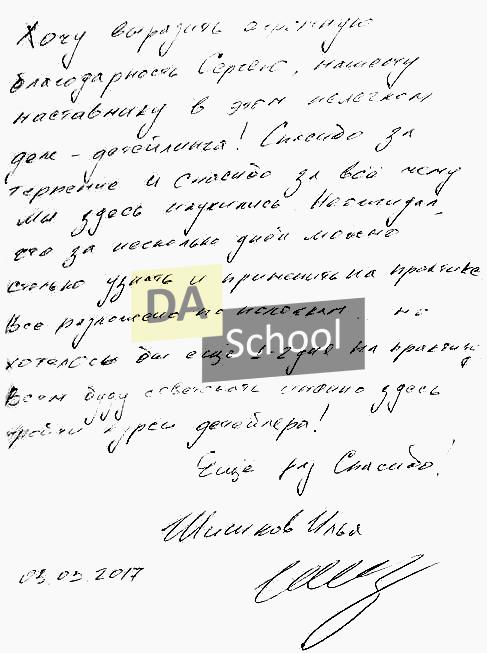 Хочу выразить огромную
благодарность Сергею, нашему
наставнику в этом нелегком
деле - детейлинга! Спасибо за
терпение и спасибо за всё чему
мы здесь научились. Не ожидал,
что за несколько дней можно
столько узнать и применить на практике
Все разложено по полочкам. но
хотелось бы ещё 2 дня на практику
Всем буду советовать именно здесь
пройти курсы детейлера!
Ещё раз Спасибо!
Шишков Илья
03.03.2017
DA
School